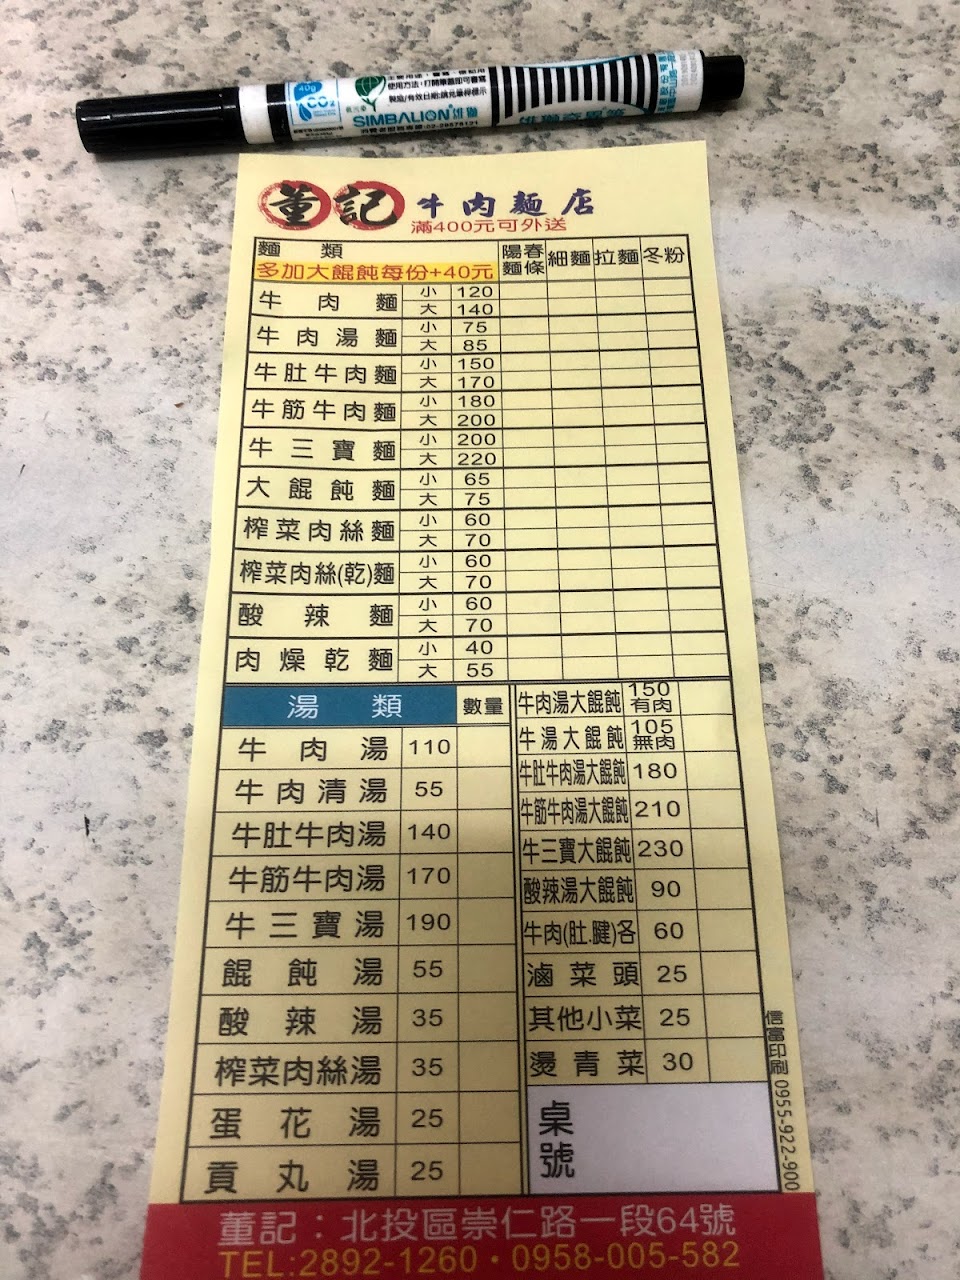 40g
CO2
使用方法:打開筆蓋即可書寫
製造/有效日期:請見筆桿標示
SIMBALION 雄獅
消費者服務專線:02-28578121
雄獅奇異筆
董記 牛肉麵店
滿400元可外送
麵類 陽春麵條 細麵 拉麵 冬粉
多加大餛飩每份+40元
牛肉麵 小 120
大 140
牛肉湯麵 小 75
大 85
牛肚牛肉麵 小 150
大 170
牛筋牛肉麵 小 180
大 200
牛三寶麵 小 200
大 220
大餛飩麵 小 65
大 75
榨菜肉絲麵 小 60
大 70
榨菜肉絲(乾)麵 小 60
大 70
酸辣麵 小 60
大 70
肉燥乾麵 小 40
大 55
湯類 數量
牛肉湯 110
牛肉清湯 55
牛肚牛肉湯 140
牛筋牛肉湯 170
牛三寶湯 190
餛飩湯 55
酸辣湯 35
榨菜肉絲湯 35
蛋花湯 25
貢丸湯 25
牛肉湯大餛飩 150 有肉
牛湯大餛飩 105 無肉
牛肚牛肉湯大餛飩 180
牛筋牛肉湯大餛飩 210
牛三寶大餛飩 230
酸辣湯大餛飩 90
牛肉(肚.腱)各 60
滷菜頭 25
其他小菜 25
燙青菜 30
桌號
信富印刷 0955-922-900
董記:北投區崇仁路一段64號
TEL:2892-1260・0958-005-582